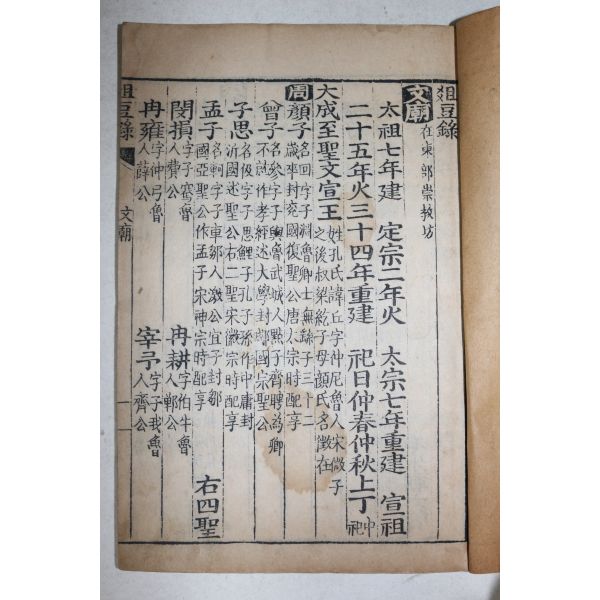 俎豆錄
文廟 在東部崇敎坊
太祖七年建 定宗二年火 太宗七年重建 宣祖
二十五年火三十四年重建 祀日仲春仲秋上丁 中祀
大成至聖文宣王 姓孔氏諱丘字仲尼魯人宋微子
之後叔梁紇子母顔氏名徵在
周 顔子 名回字子淵魯卿士無繇子三十二
歲卒封兗國復聖公唐太宗時配享
曾子 名參字子輿魯武城人點子齊聘爲卿
不就作孝經述大學封郕國宗聖公
子思 名伋字子思鯉子孔子孫作中庸封
沂國述聖公右二聖宋徽宗時配享
孟子 名軻字子車鄒人激公宜子封鄒
國亞聖公作孟子宋神宗時配享
右四聖
閔損 字子騫魯
人費公
冉耕 字伯牛魯
人鄆公
冉雍 字仲弓魯
人薛公
宰予 字子我魯
人齊公
俎豆錄 文廟 一